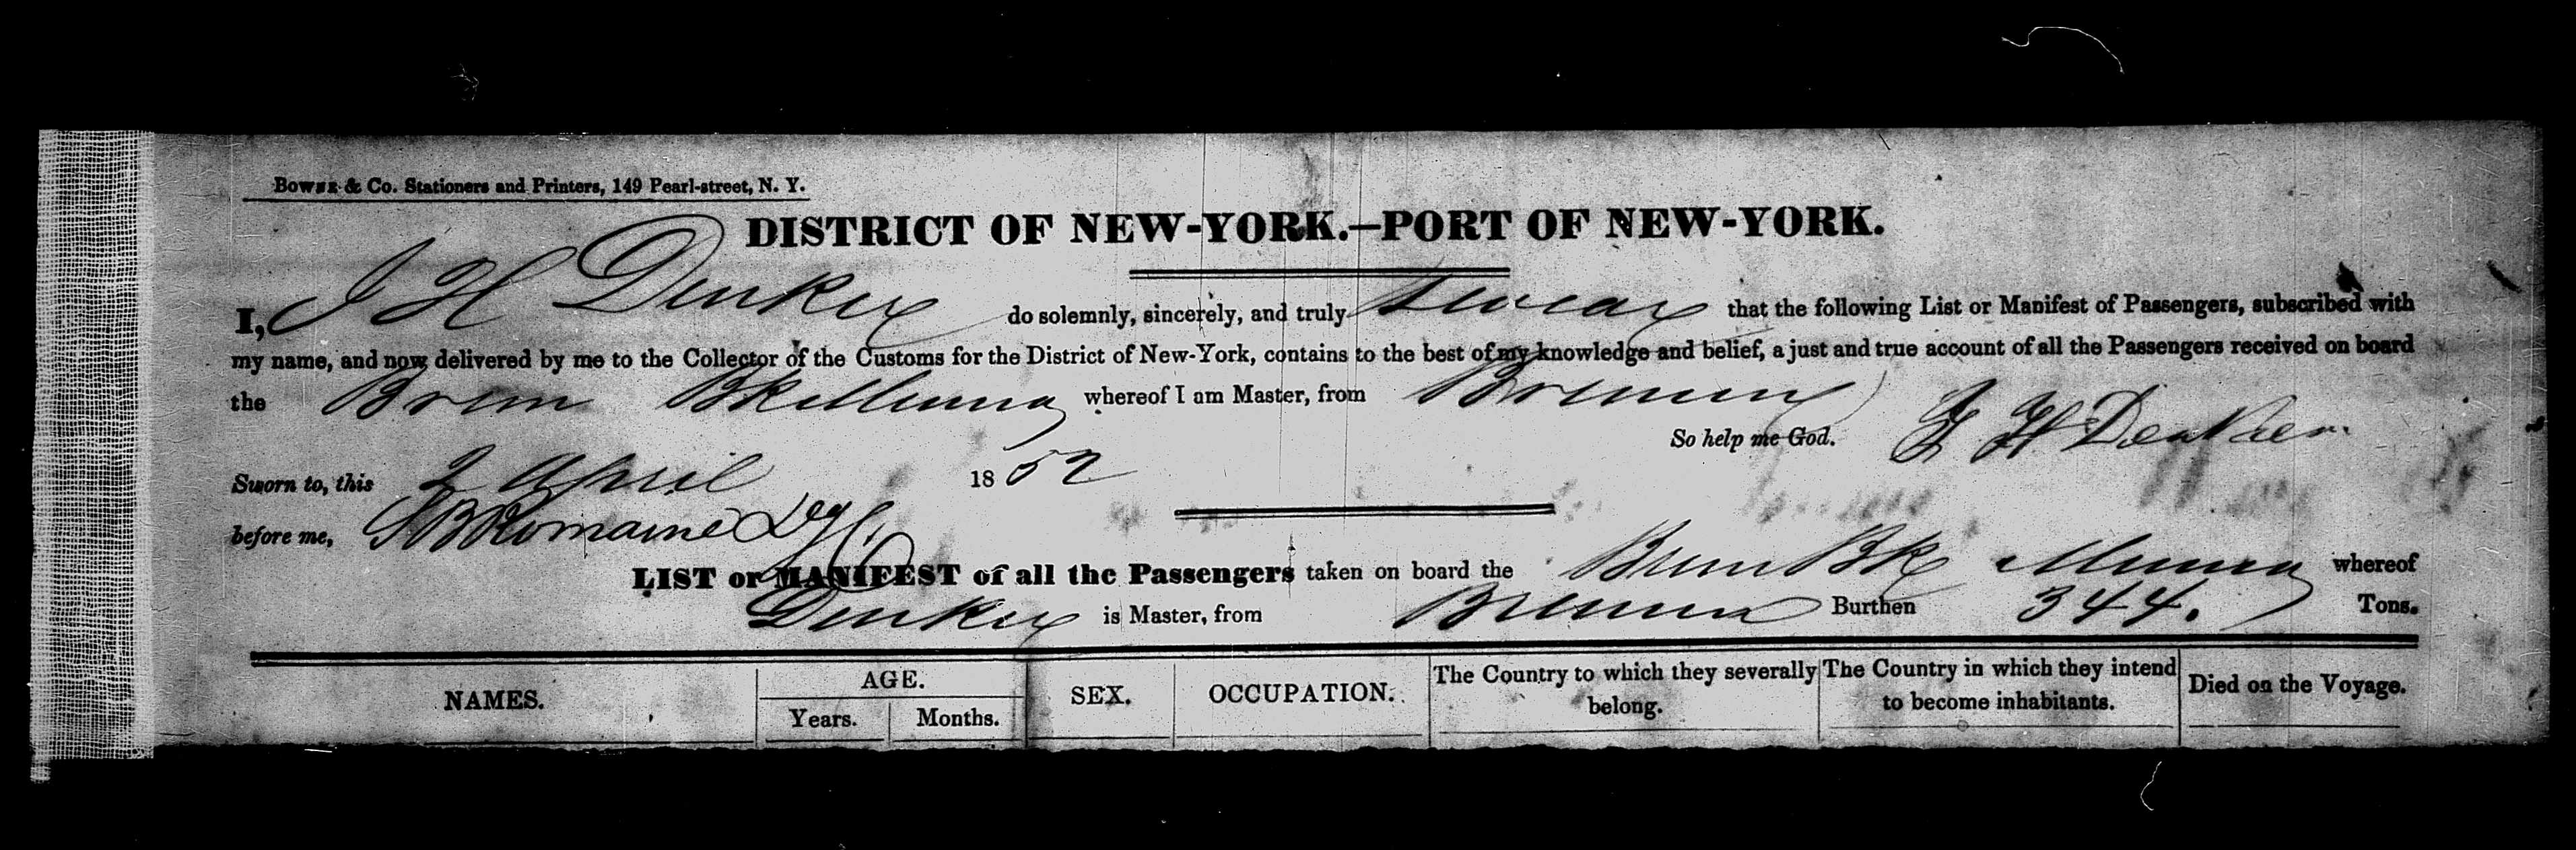 Bowne & Co. Stationers and Printers, 149 Pearl-street, N. Y.
DISTRICT OF NEW-YORK.—PORT OF NEW-YORK.
I, J H Denker do solemnly, sincerely, and truly swear that the following List or Manifest of Passengers, subscribed with
my name, and now delivered by me to the Collector of the Customs for the District of New-York, contains to the best of my knowledge and belief, a just and true account of all the Passengers received on board
the Brem Bk whereof I am Master, from Bremen
So help me God. J H Denker
Sworn to, this 2 April 1852
before me, Romaine
LIST or MANIFEST of all the Passengers taken on board the Brem Bk whereof
Denker is Master, from Bremen Burthen 344. Tons.
NAMES. AGE. Years. Months. SEX. OCCUPATION. The Country to which they severally belong. The Country in which they intend to become inhabitants. Died on the Voyage.